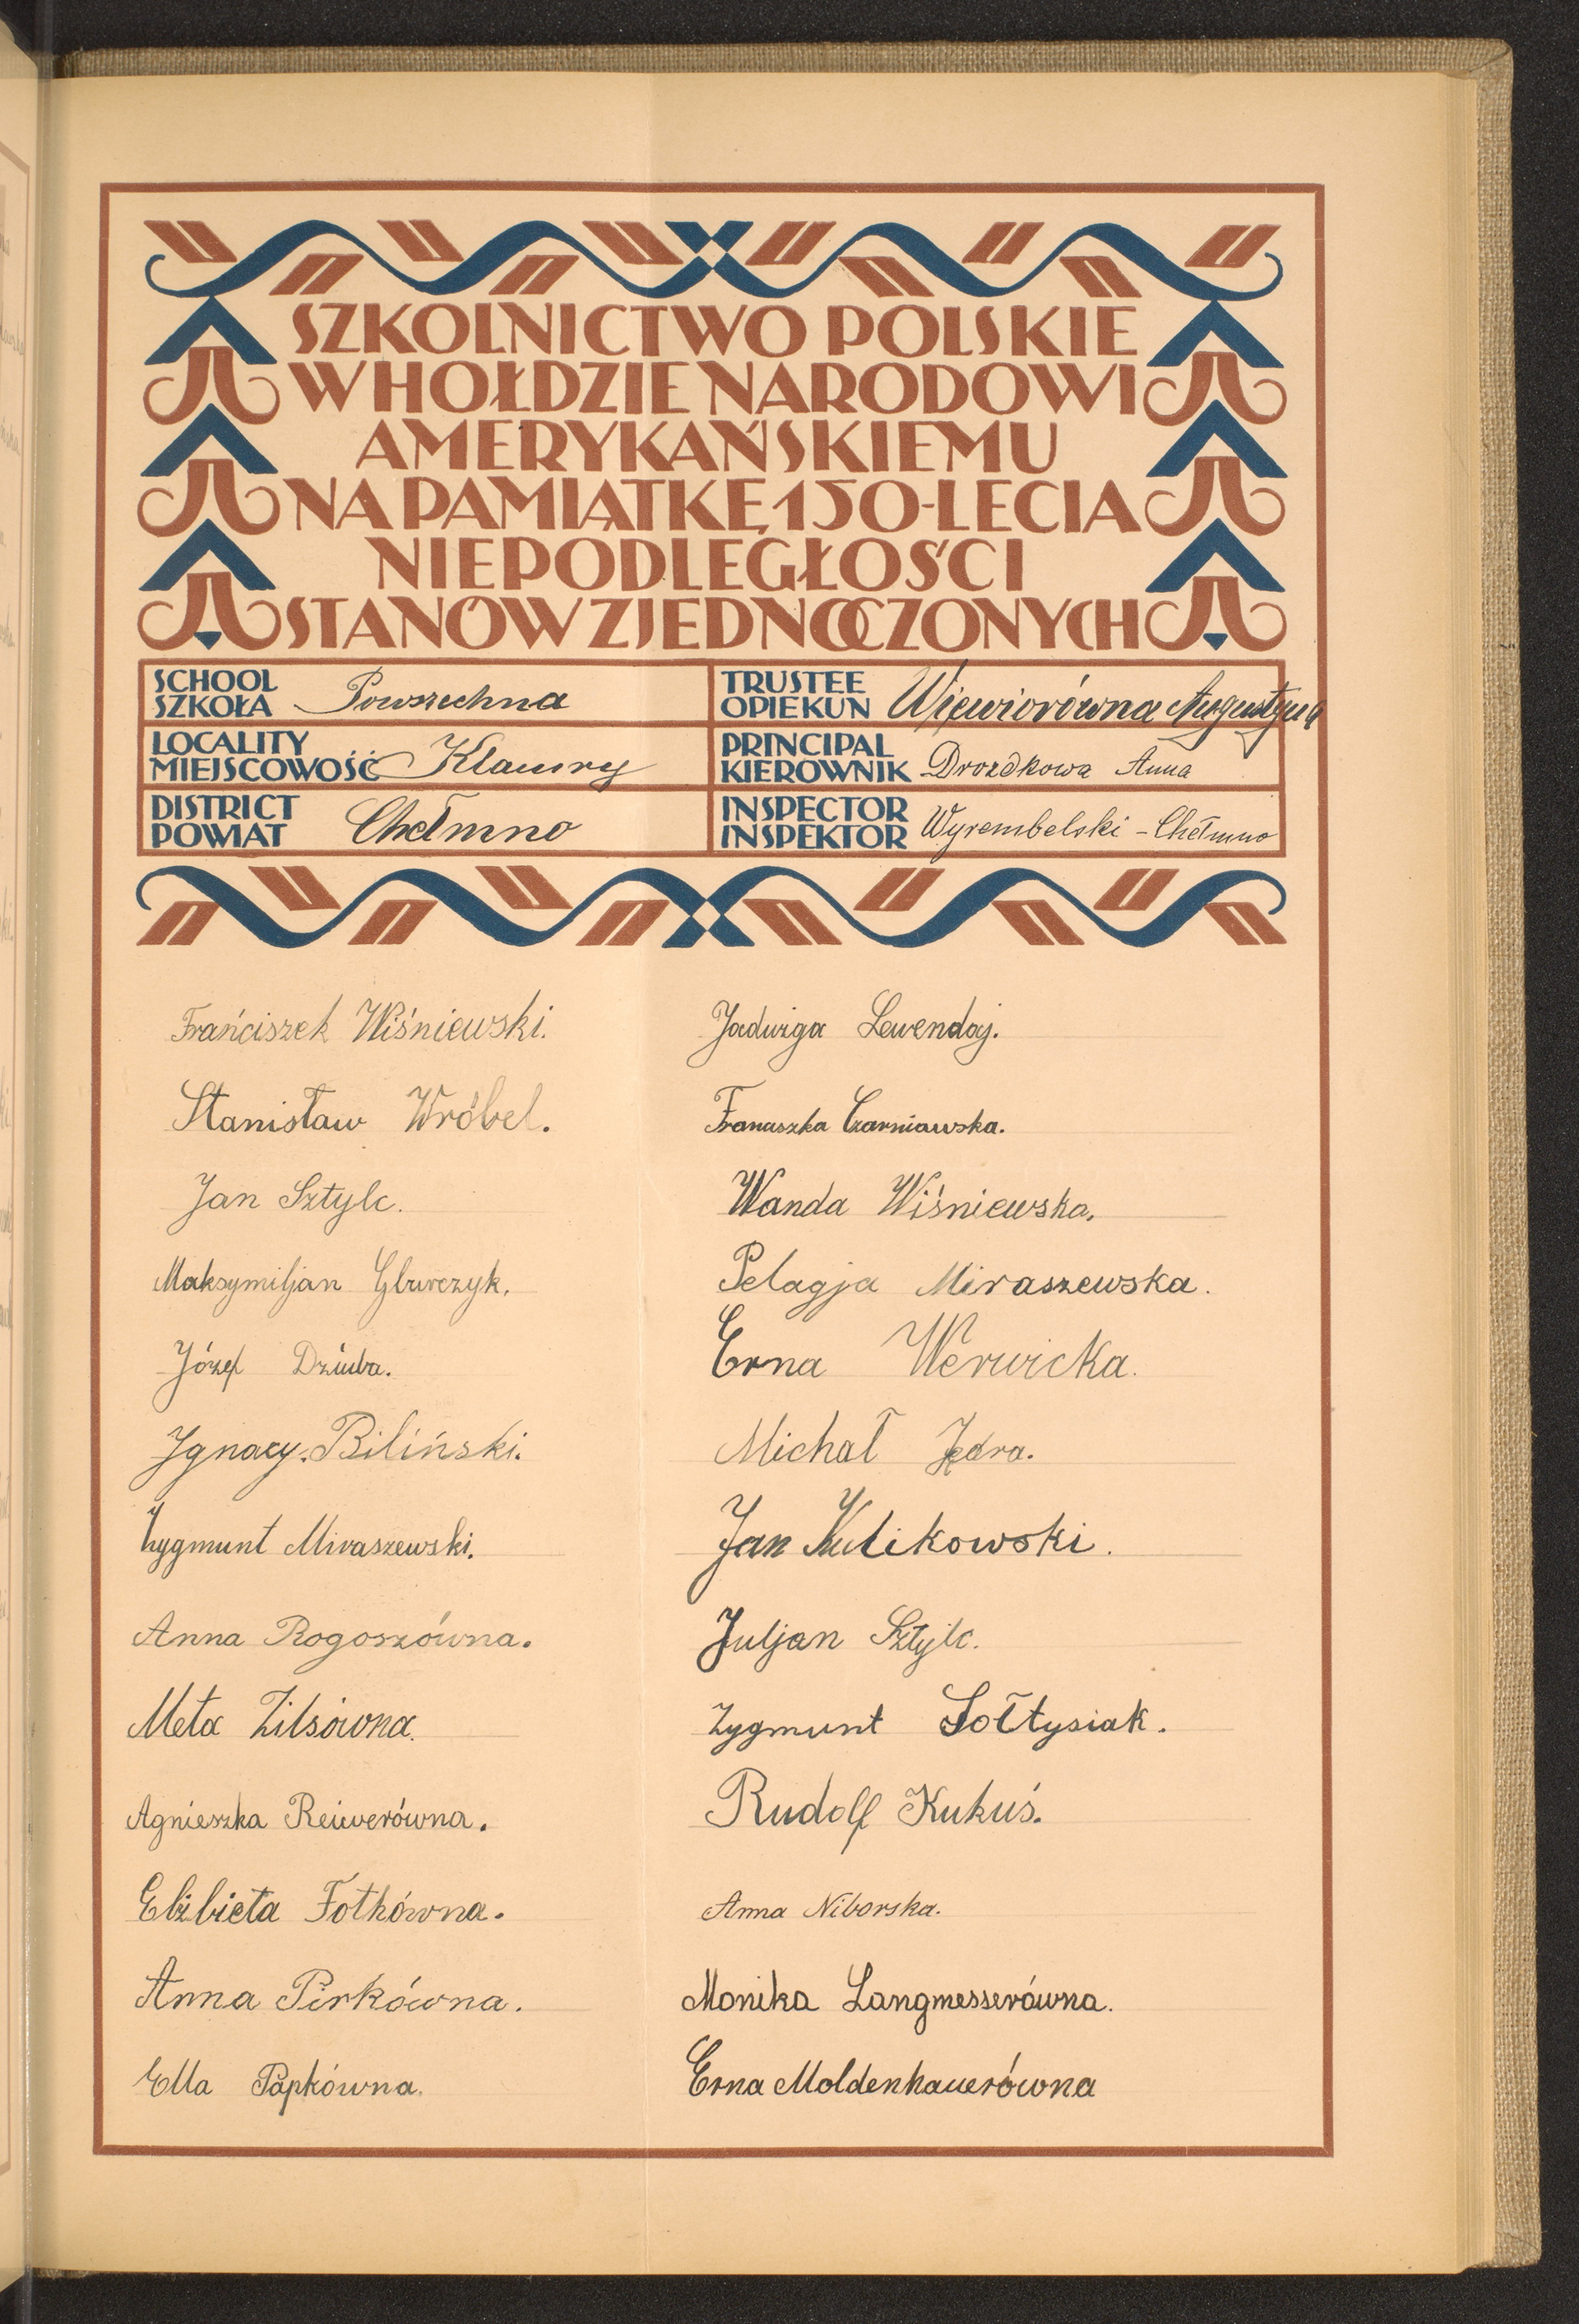 SZKOLNICTWO POLSKIE
W HOŁDZIE NARODOWI
AMERYKAŃSKIEMU
NA PAMIĄTKĘ 150-LECIA
NIEPODLEGŁOŚCI
STANÓW ZJEDNOCZONYCH
SCHOOL
SZKOŁA Powszechna
TRUSTEE
OPIEKUN Wiewiorówna Augustyna
LOCALITY
MIEJSCOWOŚĆ Klamry
PRINCIPAL
KIEROWNIK Drozdkowa Anna
DISTRICT
POWIAT Chełmno
INSPECTOR
INSPEKTOR Wyrembelski - Chełmno
Frańciszek Wiśniewski.
Stanisław Wróbel.
Jan Sztylc.
Maksymiljan
Józef Dziuba.
Ignacy. Biliński.
Zygmunt Miraszewski.
Anna Rogoszówna.
Meta Zilsówna.
Agnieszka Reiwerówna.
Elżbieta Fotkówna.
Anna Pirkówna.
Ella Papkówna.
Jadwiga Lewendaj.
Czarniawska.
Wanda Wiśniewska.
Pelagja Miraszewska.
Erna Werwicka.
Michał
Jan Kulikowski.
Juljan Sztylc.
Zygmunt Sołtysiak.
Rudolf Kukuś.
Anna Niborska.
Monika Langmesserówna.
Erna Moldenhauerówna